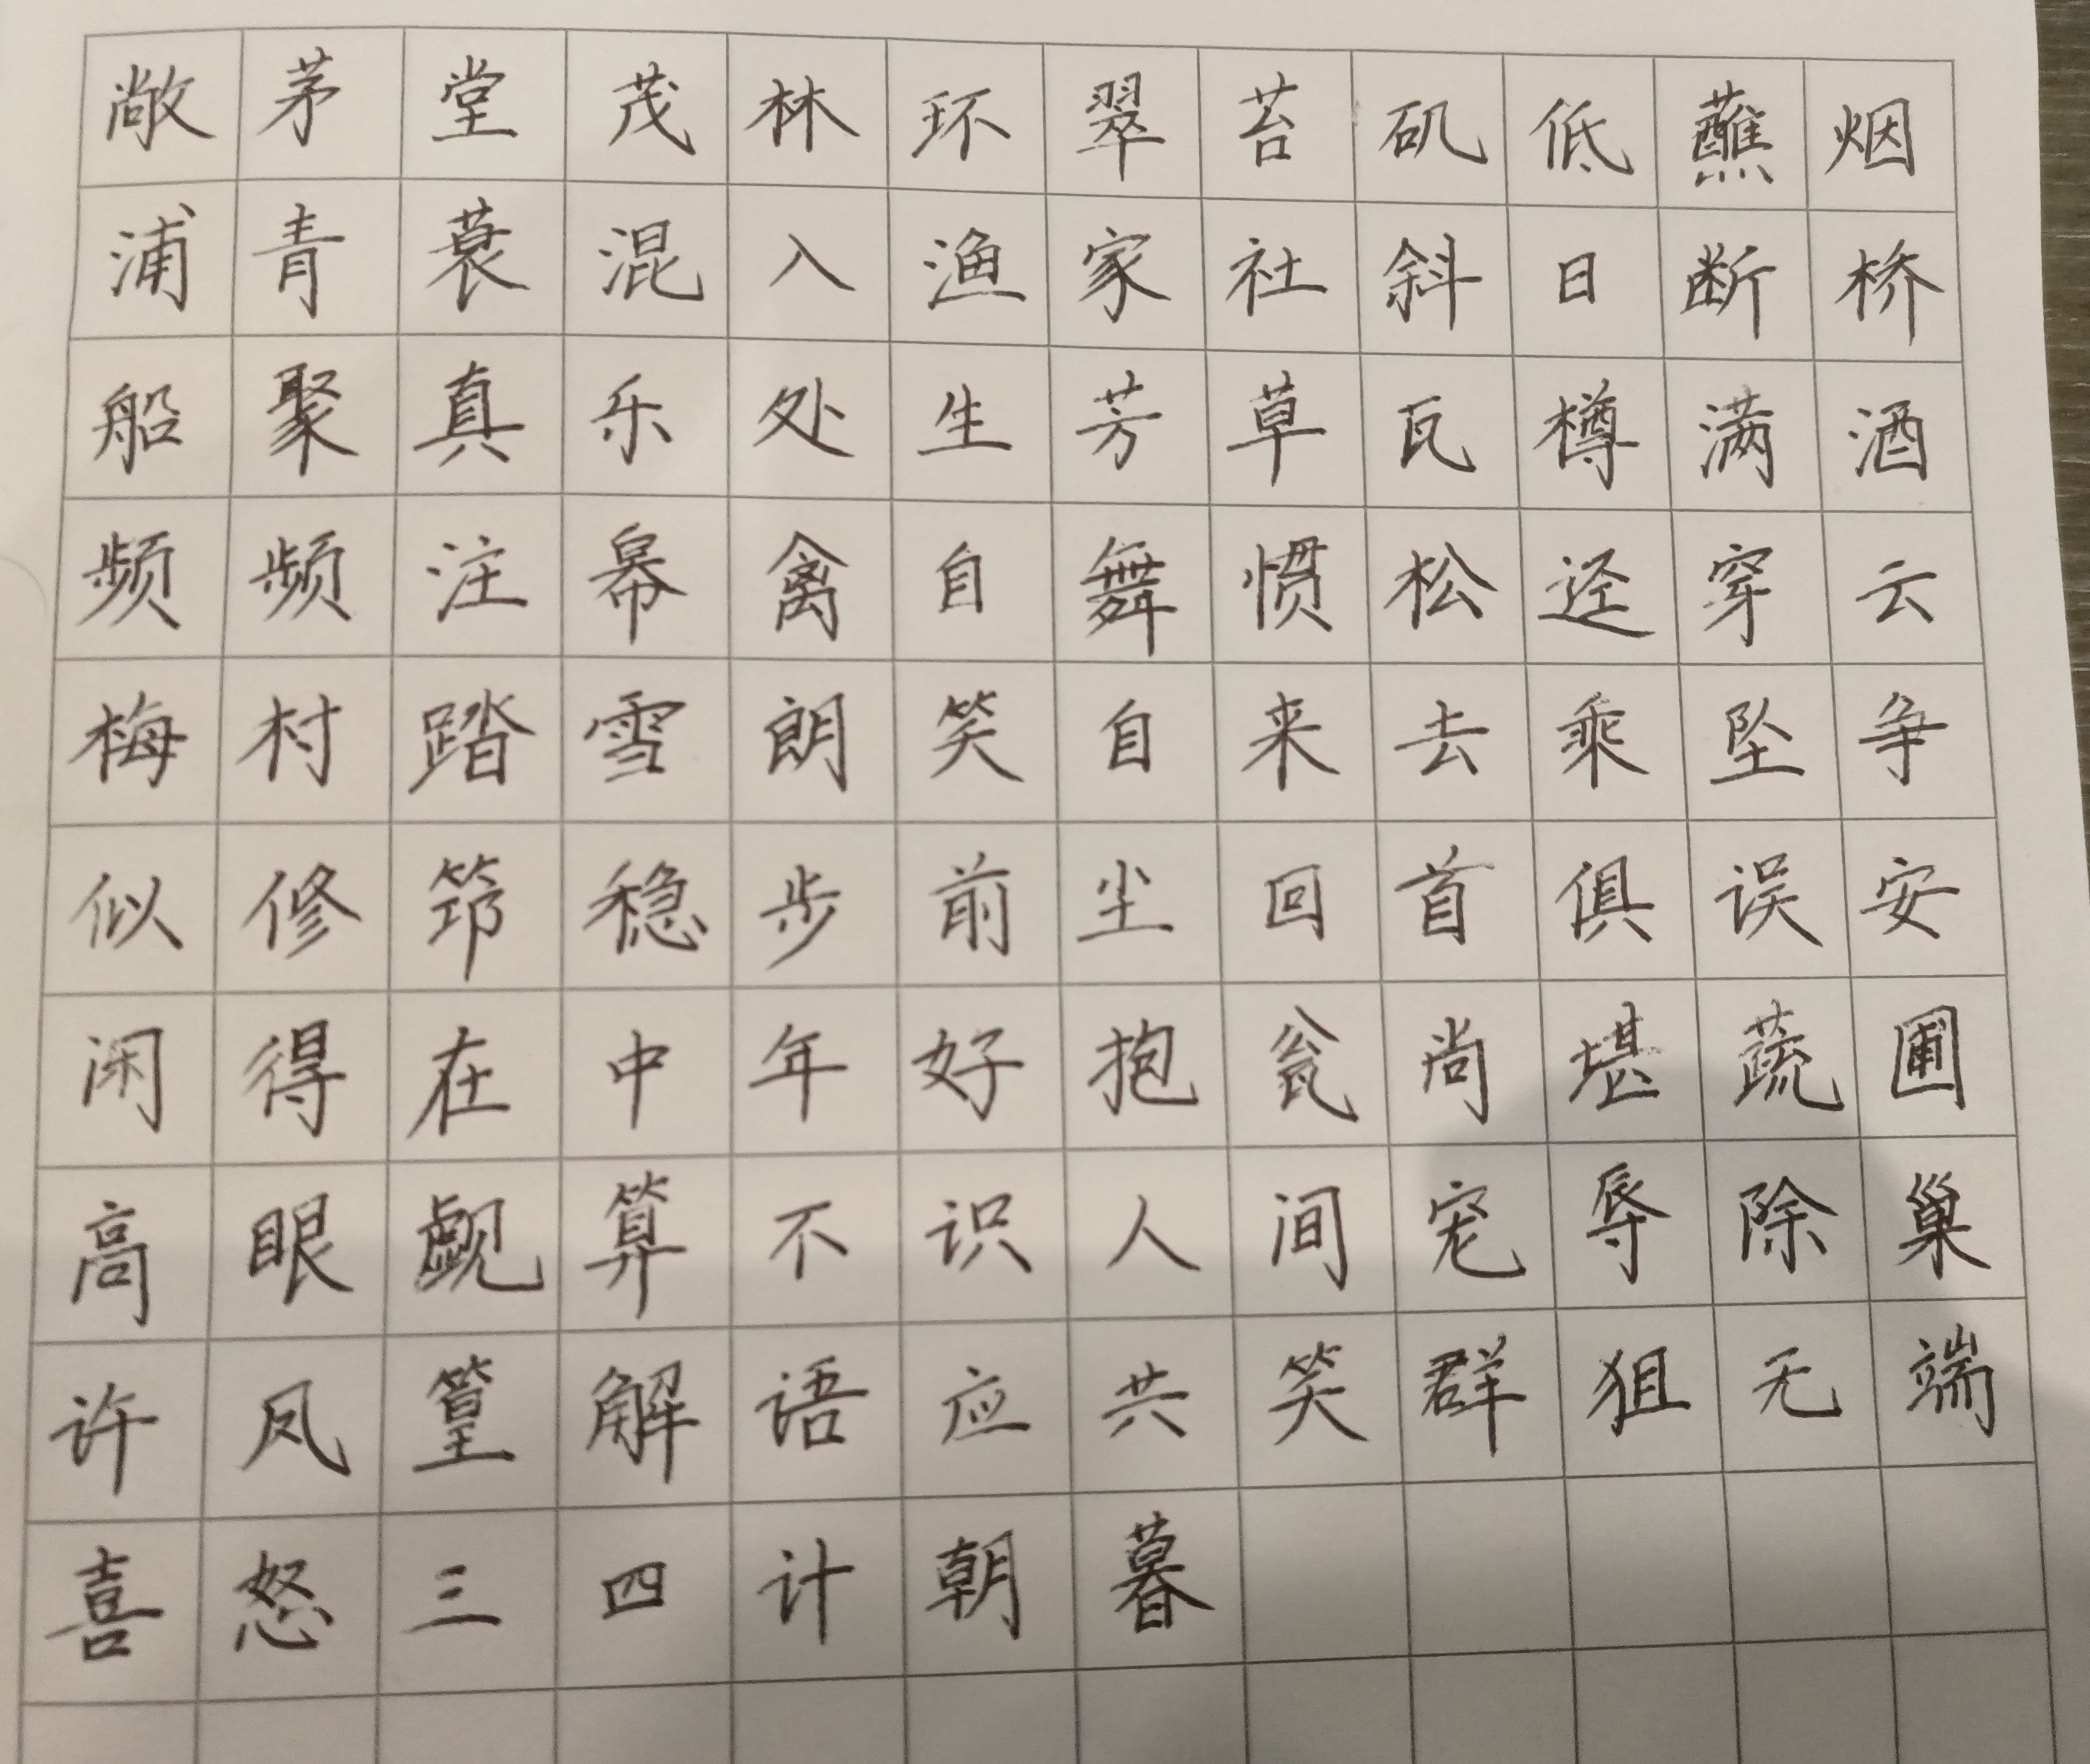 敞茅堂茂林环翠苔矶低蘸烟
浦青蓑混入渔家社斜日断桥
船聚真乐处生芳草瓦樽满酒
频频注幕禽自舞惯松迳穿云
梅村踏雪朗笑自来去乘坠争
似修筇稳步前尘回首俱误安
闲得在中年好抱瓮尚堪蔬圃
高眼觑算不识人间宠辱除巢
许凤篁解语应共笑群狙无端
喜怒三四计朝暮